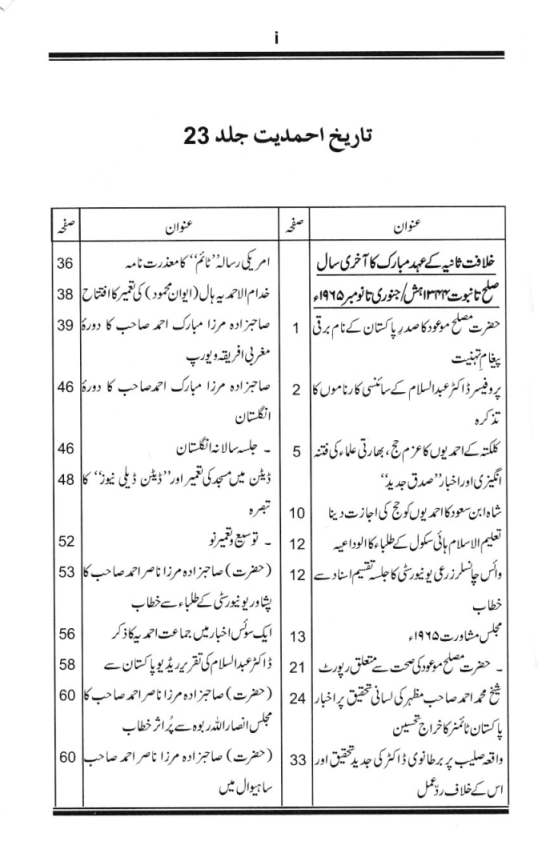 i
تاریخ احمدیت جلد 23
عنوان صفحہ
خلافت ثانیہ کے عہد مبارک کا آخری سال
صلح تا نبوت ۱۳۴۴ہش/جنوری تا نومبر ۱۹۶۵ء
حضرت مصلح موعود کا صدرِ پاکستان کے نام برقی 1
پیغامِ تہنیت
پروفیسر ڈاکٹر عبدالسلام کے سائنسی کارناموں کا 2
تذکرہ
کلکتہ کے احمدیوں کا عزم حج، بھارتی علماء کی فتنہ 5
انگیزی اور اخبار ”صدق جدید“
شاہ ابن سعود کا احمدیوں کو حج کی اجازت دینا 10
تعلیم الاسلام ہائی سکول کے طلباء کا الوداعیہ 12
وائس چانسلر زرعی یونیورسٹی کا جلسہ تقسیم اسناد سے 12
خطاب
مجلس مشاورت ۱۹۶۵ء 13
۔ حضرت مصلح موعود کی صحت سے متعلق رپورٹ 21
شیخ محمد احمد صاحب مظہر کی لسانی تحقیق پر اخبار 24
پاکستان ٹائمز کا خراج تحسین
واقعہ صلیب پر برطانوی ڈاکٹر کی جدید تحقیق اور 33
اس کے خلاف ردِّعمل
عنوان صفحہ
امریکی رسالہ ”ٹائم“ کا معذرت نامہ 36
خدام الاحمدیہ ہال (ایوان محمود) کی تعمیر کا افتتاح 38
صاحبزادہ مرزا مبارک احمد صاحب کا دورۂ 39
مغربی افریقہ و یورپ
صاحبزادہ مرزا مبارک احمد صاحب کا دورۂ 46
انگلستان
۔ جلسہ سالانہ انگلستان 46
ڈیٹن میں مسجد کی تعمیر اور ”ڈیٹن ڈیلی نیوز“ کا 48
تبصرہ
۔ توسیع و تعمیر نو 52
(حضرت) صاحبزادہ مرزا ناصر احمد صاحب کا 53
پشاور یونیورسٹی کے طلباء سے خطاب
ایک سوئس اخبار میں جماعت احمدیہ کا ذکر 56
ڈاکٹر عبدالسلام کی تقریر ریڈیو پاکستان سے 58
(حضرت) صاحبزادہ مرزا ناصر احمد صاحب کا 60
مجلس انصار اللہ ربوہ سے پُراثر خطاب
(حضرت) صاحبزادہ مرزا ناصر احمد صاحب 60
ساہیوال میں